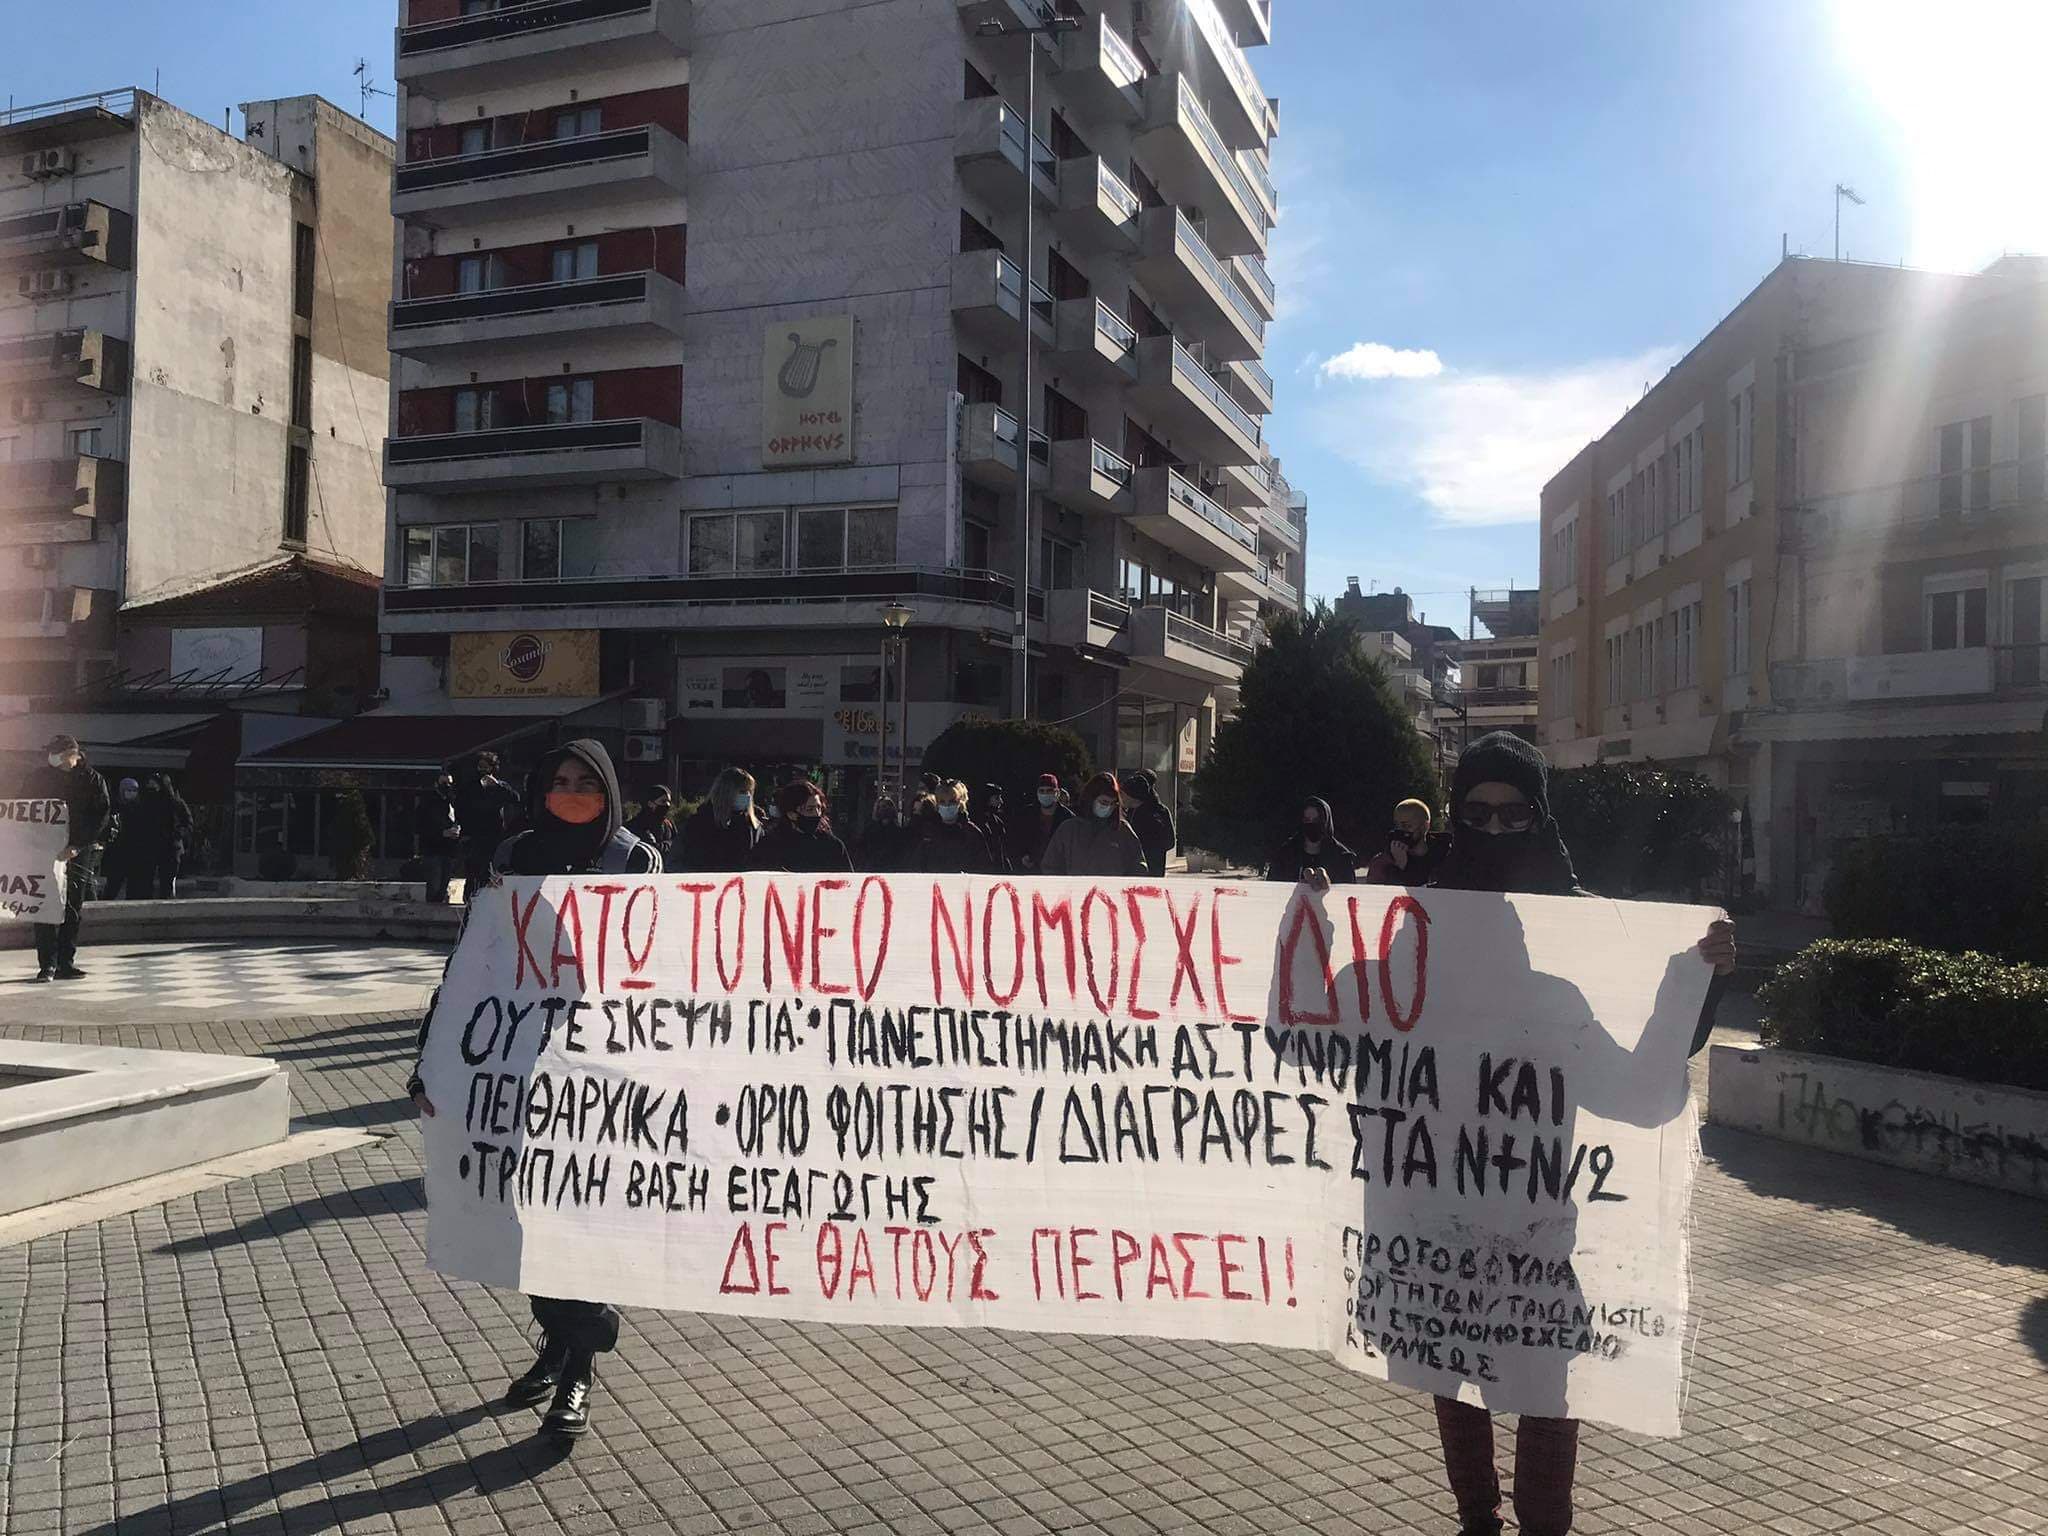 HOTEL
ORPHEVS
Roxanita
VOGUE
OPTIC
STORES
ΡΙΣΕΙΣ
ΜΑΣ
ΚΑΤΩ ΤΟ ΝΕΟ ΝΟΜΟΣΧΕΔΙΟ
ΟΥΤΕ ΣΚΕΨΗ ΓΙΑ: •ΠΑΝΕΠΙΣΤΗΜΙΑΚΗ ΑΣΤΥΝΟΜΙΑ ΚΑΙ
ΠΕΙΘΑΡΧΙΚΑ •ΟΡΙΟ ΦΟΙΤΗΣΗΣ/ΔΙΑΓΡΑΦΕΣ ΣΤΑ Ν+Ν/2
•ΤΡΙΠΛΗ ΒΑΣΗ ΕΙΣΑΓΩΓΗΣ
ΔΕ ΘΑ ΤΟΥΣ ΠΕΡΑΣΕΙ!
ΠΡΩΤΟΒΟΥΛΙΑ
ΦΟΙΤΗΤΩΝ/ΤΡΙΩΝ
ΟΧΙ ΣΤΟ ΝΟΜΟΣΧΕΔΙΟ
ΚΕΡΑΜΕΩΣ
ΠΑΟΚ